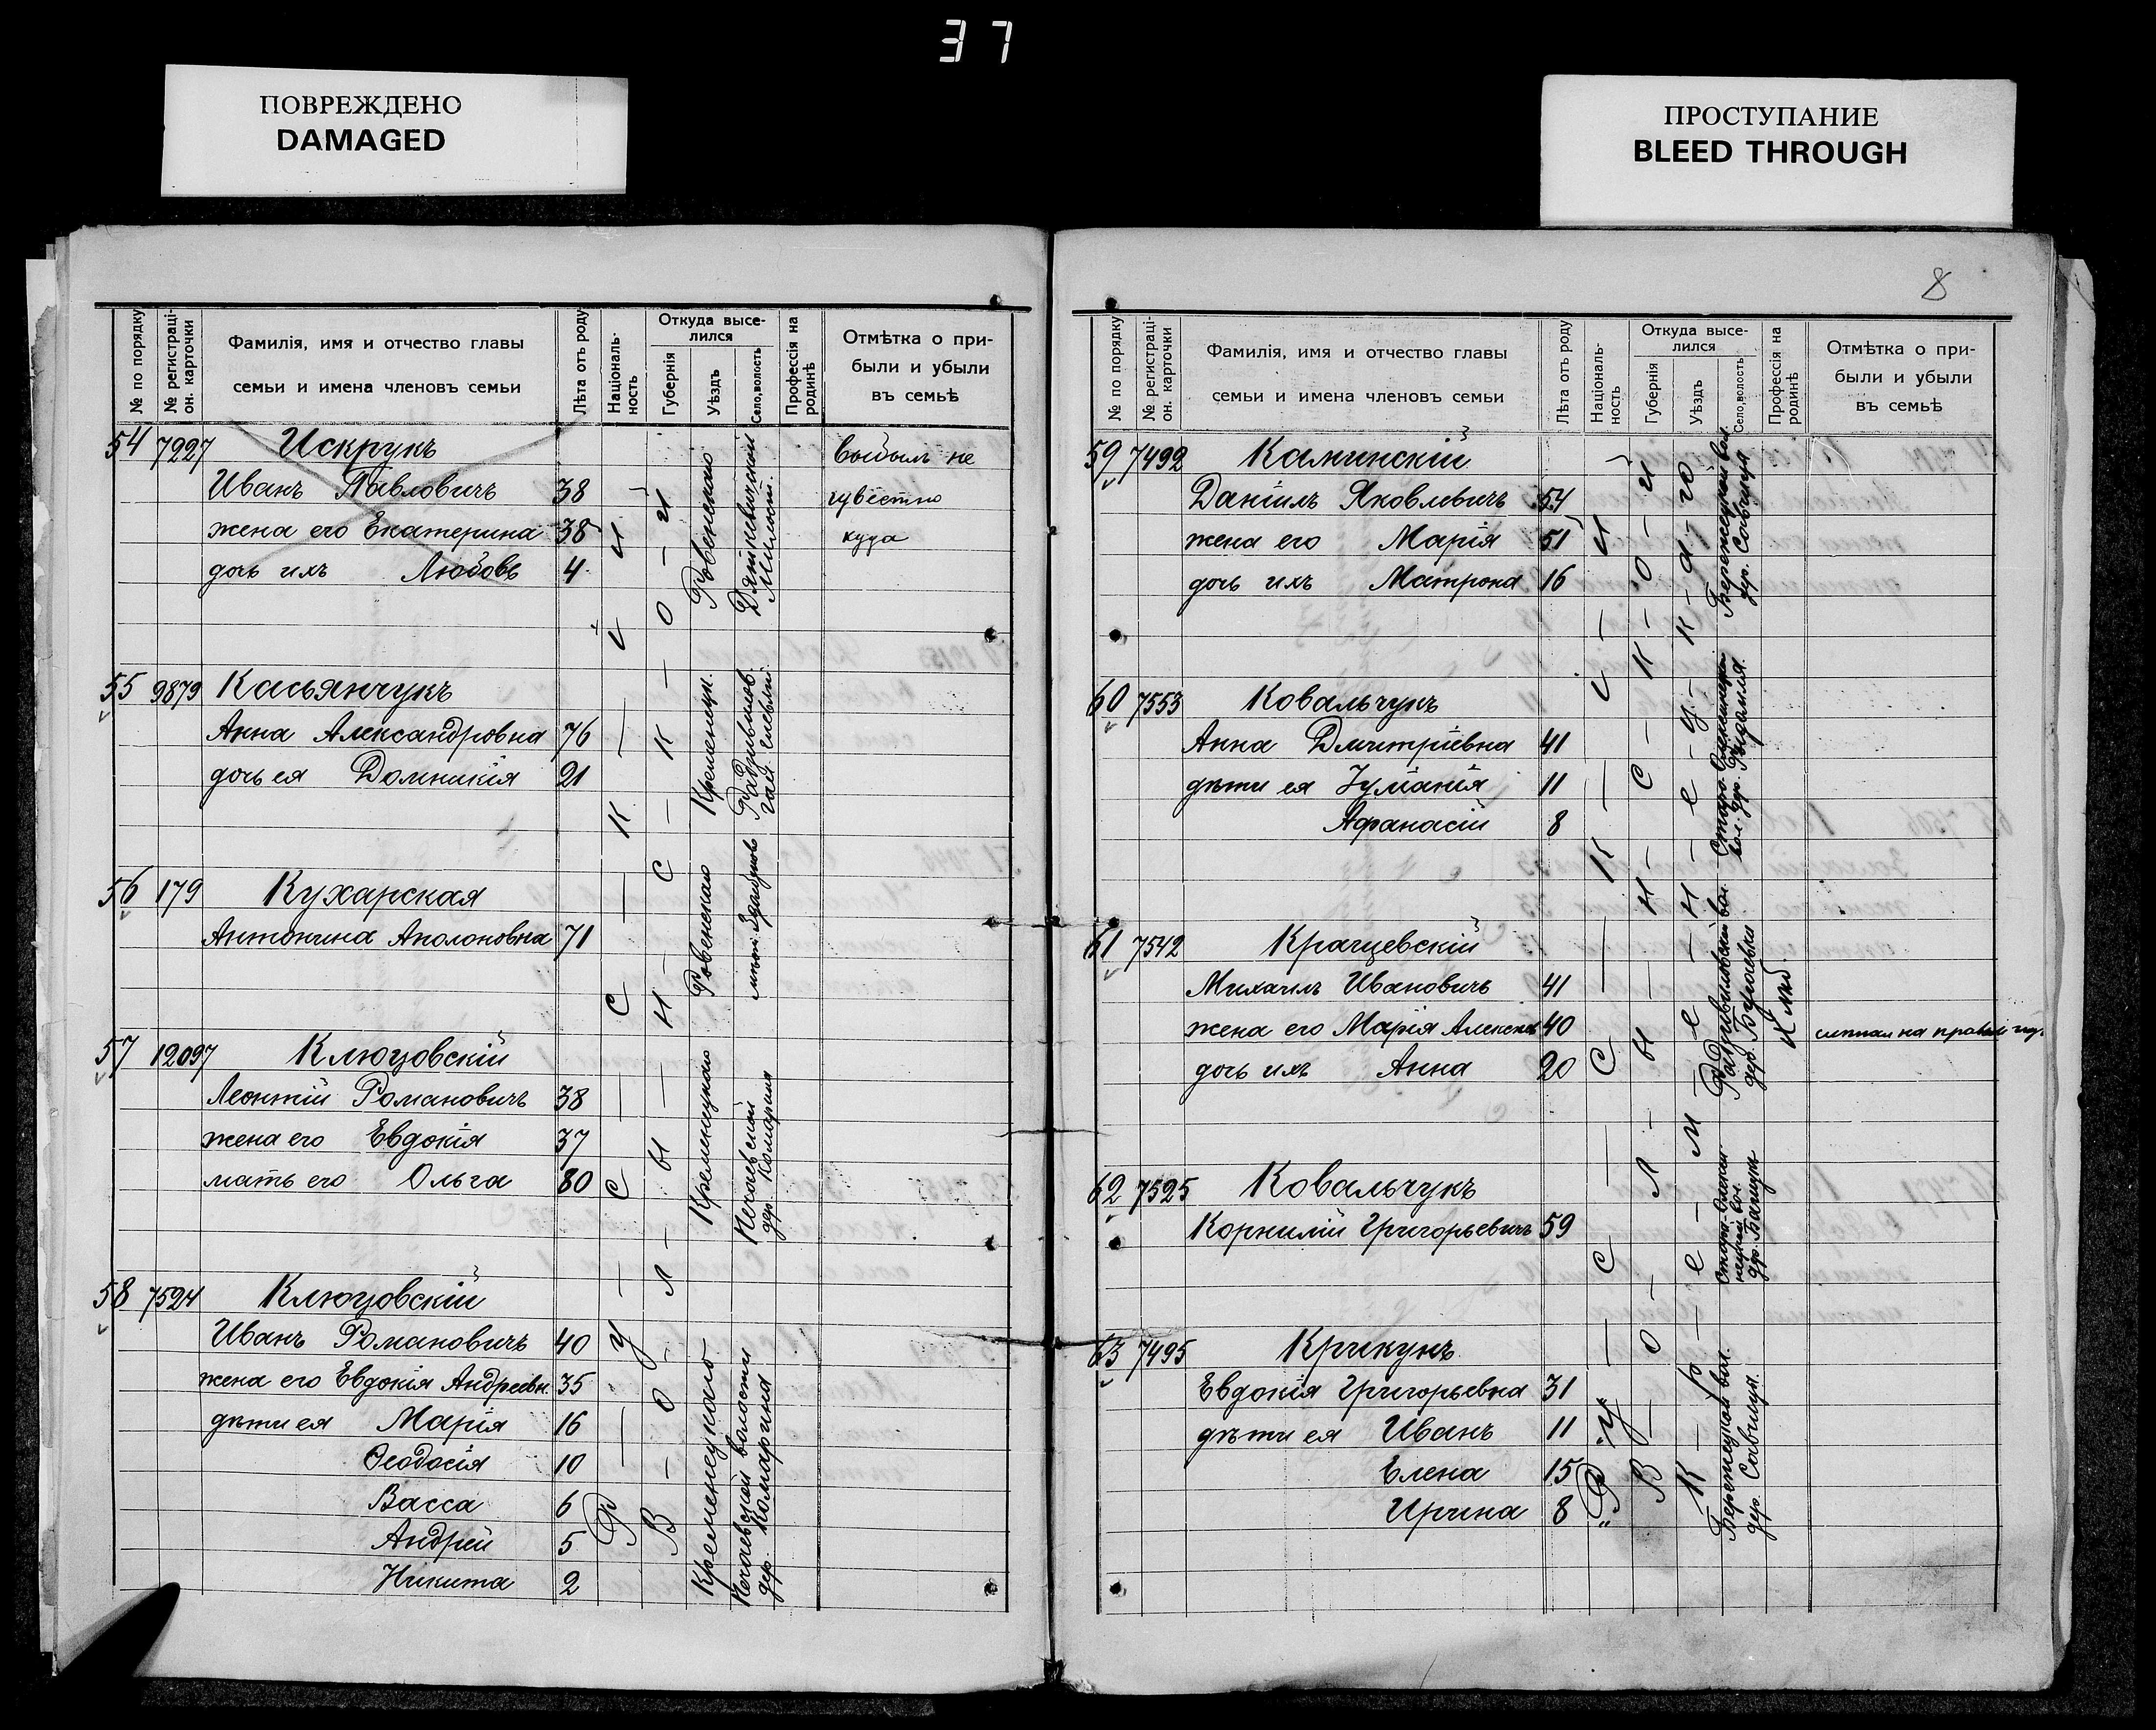 37
ПОВРЕЖДЕНО
DAMAGED
ПРОСТУПАНИЕ
BLEED THROUGH
№ по порядку
№ регистраці-
он. карточки
Фамилія, имя и отчество главы
семьи и имена членовъ семьи
Лѣта отъ роду
Національ-
ность
Откуда высе-
лился
Губернія
Уѣздъ
Село, волость
Профессія на
родинѣ
Отмѣтка о при-
были и убыли
въ семьѣ
54 7227 Искрукъ выбылъ не
Иванъ Павловичъ 38
жена его Екатерина 38 куда
дочь ихъ Любовь 4
Ровенскаго
55 9879 Касьянчукъ
Анна Александровна 76
дочь ея Домникія 21
Кременецк.
56 179 Кухарская
Антонина Аполоновна 71
Ровенскаго
57 12097 Клюцовскій
Леонтій Романовичъ 38
жена его Евдокія 37
мать его Ольга 80
Кременецкаго
дер. Комарина
58 7524 Клюцовскій
Иванъ Романовичъ 40
жена его Евдокія Андреевн. 35
дѣти ея Марія 16
Ѳеодосія 10
Васса 6
Андрей 5
Никита 2
Кременецкаго
волости
дер. Комарина
Р — У — С — С — К — І — Й
В — О — Л — Ы — Н — С — К — О — Й
8
№ по порядку
№ регистраці-
он. карточки
Фамилія, имя и отчество главы
семьи и имена членовъ семьи
Лѣта отъ роду
Національ-
ность
Откуда высе-
лился
Губернія
Уѣздъ
Село, волость
Профессія на
родинѣ
Отмѣтка о при-
были и убыли
въ семьѣ
59 7492 Каминскій
Даніилъ Яковлевичъ 54
жена его Марія 51
дочь ихъ Матрона 16
Бережецкой вол.
дер. Савчица
60 7553 Ковальчукъ
Анна Дмитріевна 41
дѣти ея 11
Афанасій 8
61 7542
Михаилъ Ивановичъ 41
жена его Марія 40
дочь ихъ Анна 20
62 7525 Ковальчукъ
Корнилій Григорьевичъ 59
63 7495 Крикунъ
Евдокія Григорьевна 31
дѣти ея Иванъ 11
Елена 15
Ирина 8
Бережецкой вол.
дер. Савчица
Р — У — С — С — К — І — Й
В — О — Л — Ы — Н — С — К — О — Й
К — Р — Е — М — Е — Н — Е — Ц — К — А — ГО